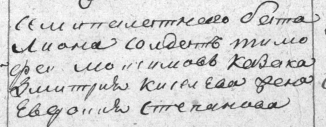 Семипалатнаго бата
лиона солдатъ тимо
фей моисимовъ казака
Дмитрия киселева жена
Евдокия степанова